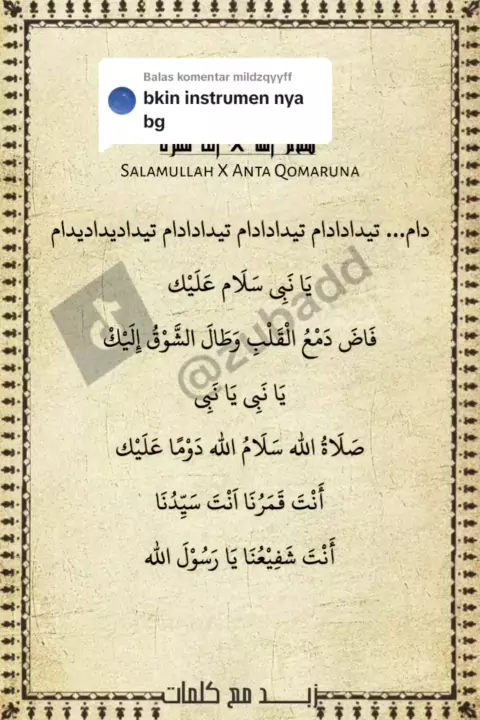 Balas komentar mildzqyyff
bkin instrumen nya
bg
SALAMULLAH X ANTA QOMARUNA
دام... تيدادادام تيدادادام تيدادادام تيداديداديدام
يَا نَبِى سَلَام عَلَيْك
فَاضَ دَمْعُ الْقَلْبِ وَطَالَ الشَّوْقُ إِلَيْكْ
يَا نَبِى يَا نَبِى
صَلَاةُ الله سَلَامُ الله دَوْمًا عَلَيْك
أَنْتَ قَمَرُنَا اَنْتَ سَيِّدُنَا
أَنْتَ شَفِيْعُنَا يَا رَسُوْلَ الله
@zubadd
زبد مع كلمات